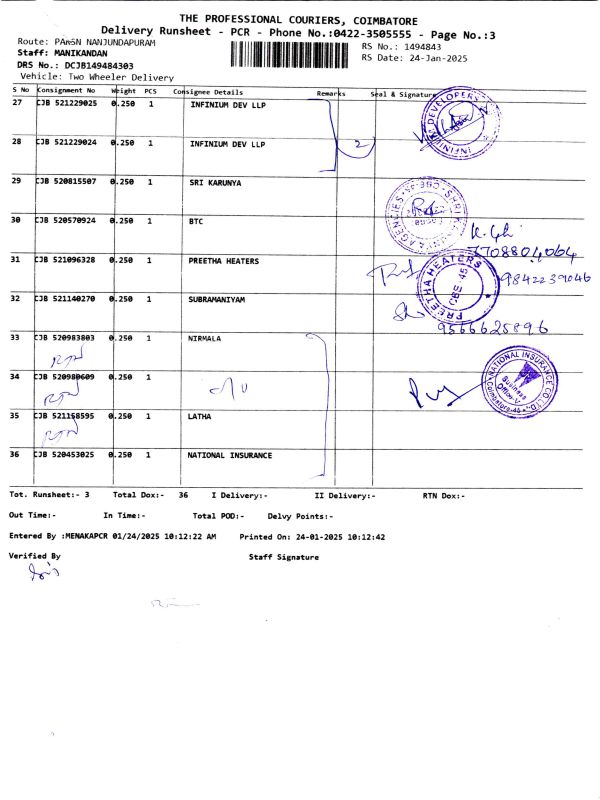 THE PROFESSIONAL COURIERS, COIMBATORE
Delivery Runsheet - PCR - Phone No.:0422-3505555 - Page No.:3
Route: PARSN NANJUNDAPURAM
RS No.: 1494843
Staff: MANIKANDAN
RS Date: 24-Jan-2025
DRS No.: DCJB149484303
Vehicle: Two Wheeler Delivery
S No Consignment No Weight PCS Consignee Details Remarks Seal & Signature
27 CJB 521229025 0.250 1 INFINIUM DEV LLP
INFINIUM DEVELOPERS
28 CJB 521229024 0.250 1 INFINIUM DEV LLP
2
29 CJB 520815507 0.250 1 SRI KARUNYA
AGENCIES
30 CJB 520570924 0.250 1 BTC
7708804064
31 CJB 521096328 0.250 1 PREETHA HEATERS
PREETHA HEATERS
CBE-45
9842239046
32 CJB 521140270 0.250 1 SUBRAMANIYAM
9566625896
33 CJB 520983803 0.250 1 NIRMALA
RTN
34 CJB 520980609 0.250 1
RTN
NATIONAL INSURANCE CO. LTD.
Business
Office-V
Coimbatore-45
35 CJB 521158595 0.250 1 LATHA
RTN
36 CJB 520453025 0.250 1 NATIONAL INSURANCE
Tot. Runsheet:- 3 Total Dox:- 36 I Delivery:- II Delivery:- RTN Dox:-
Out Time:- In Time:- Total POD:- Delvy Points:-
Entered By :MENAKAPCR 01/24/2025 10:12:22 AM Printed On: 24-01-2025 10:12:42
Verified By Staff Signature